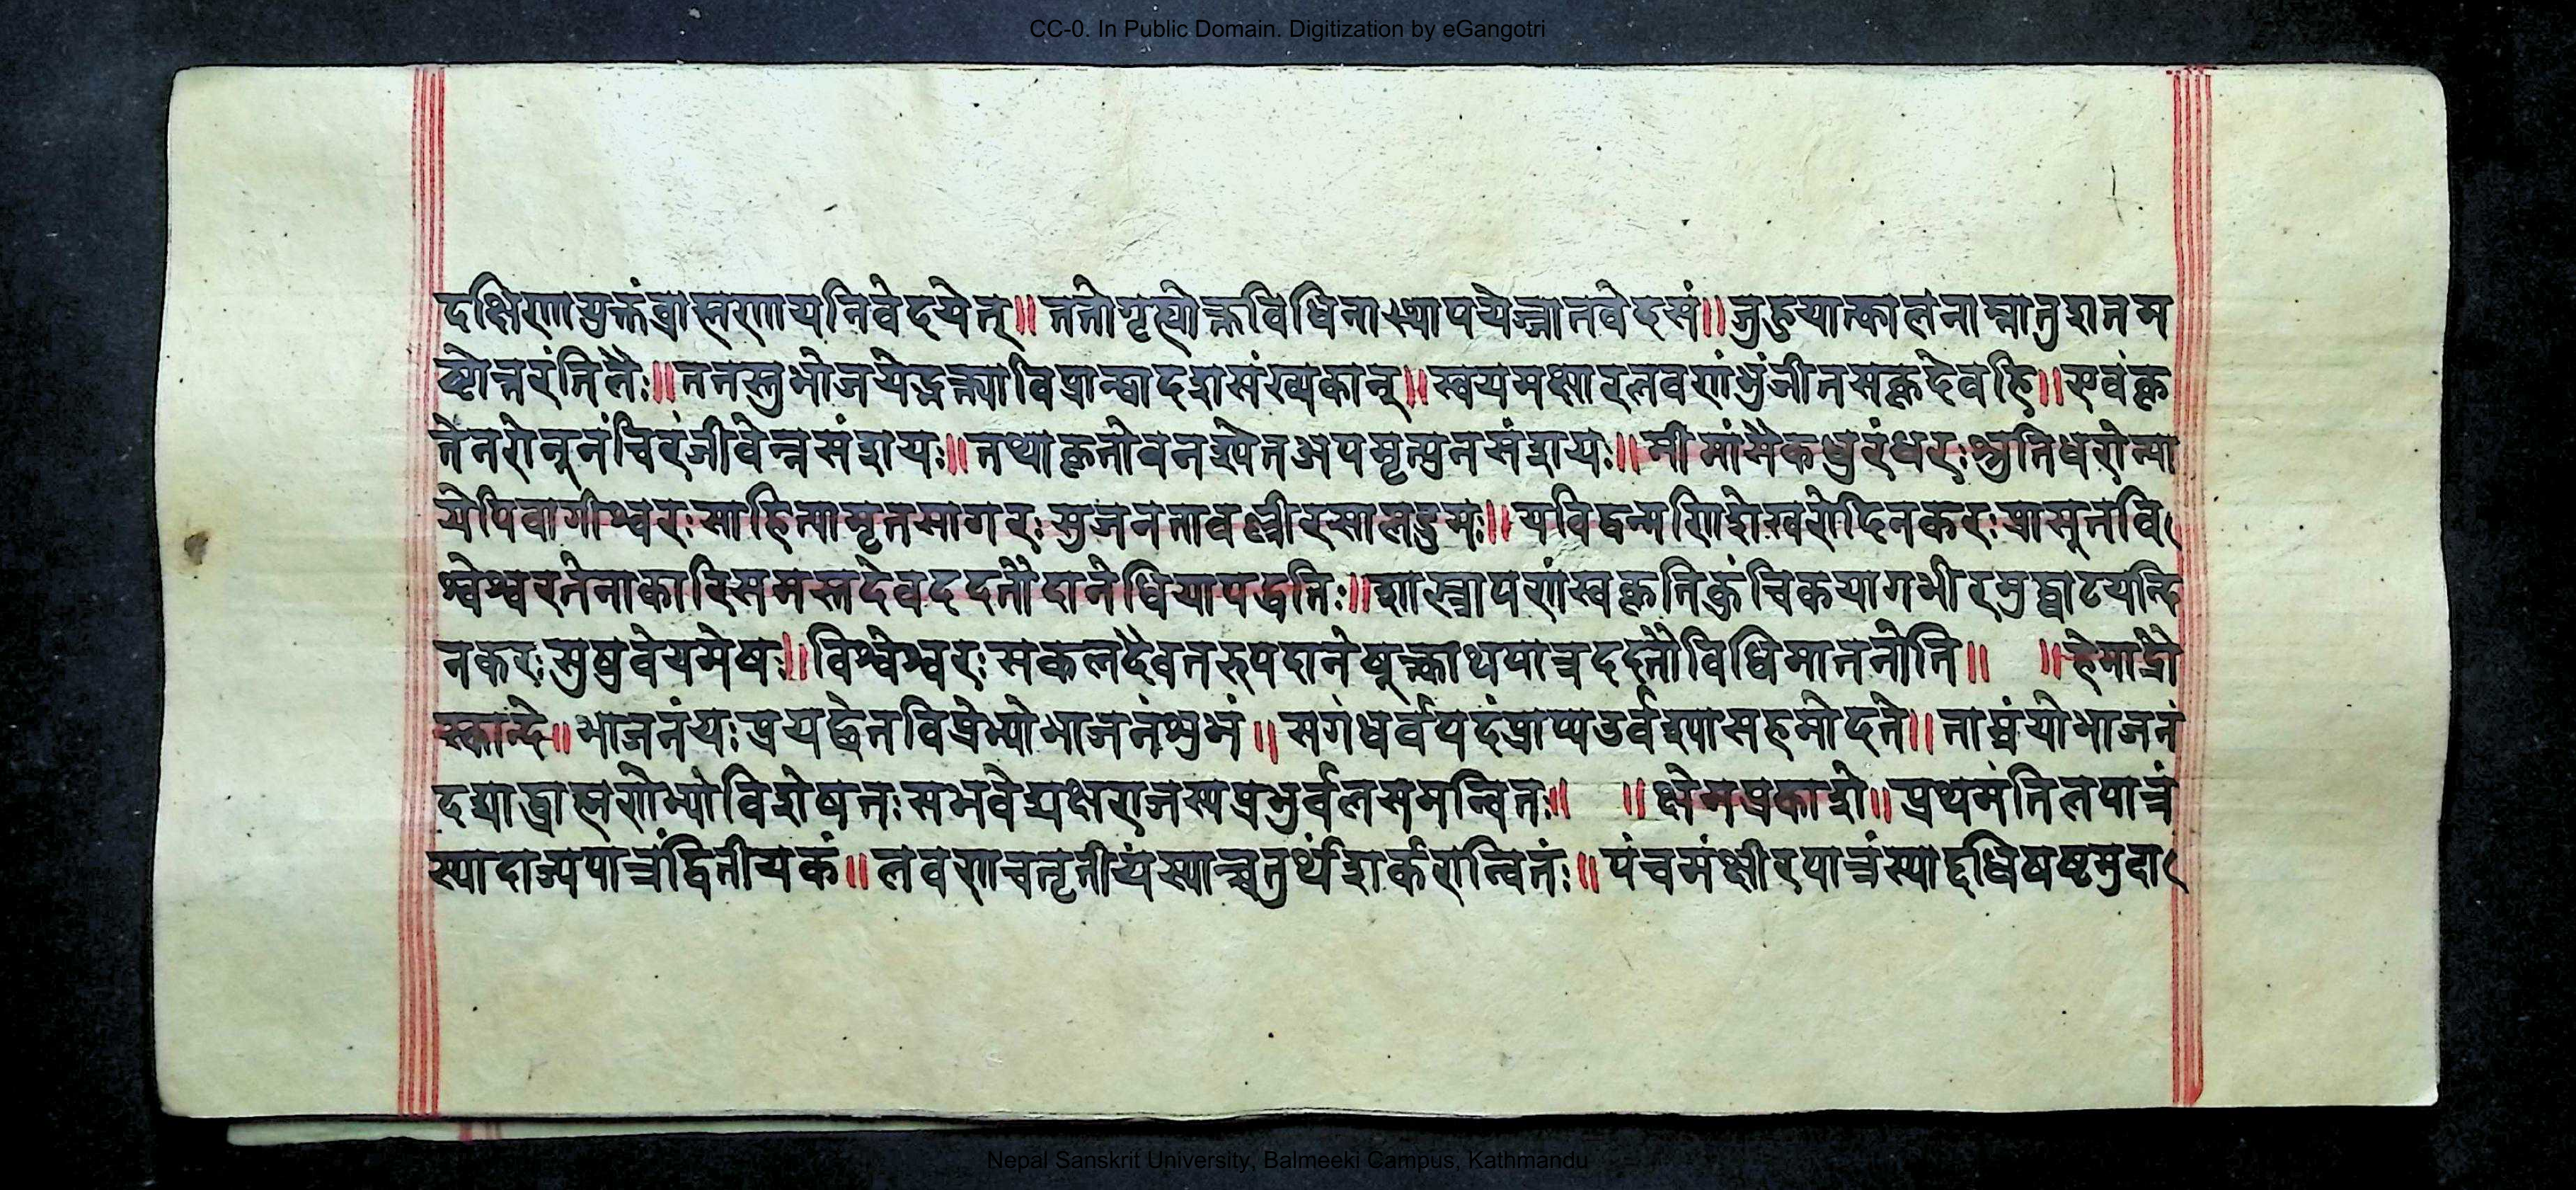 CC-0. In Public Domain. Digitization by eGangotri
दक्षिणायुक्तंब्राह्मणायनिवेदयेत्॥ततोगृह्योक्तविधिनास्थापयेज्जातवेदसं॥जुहुयात्कालनाम्नातुशतम
ष्टोत्तरंतिलैः॥ततस्तुभोजयेद्भक्त्याविप्रान्द्वादशसंख्यकान्॥स्वयमक्षारलवणंभुंजीतसकृदेवहि॥एवंकृ
तेनरोनूनंचिरंजीवेन्नसंशयः॥तथाकृतोवनश्येतअपमृत्युनसंशयः॥मीमांसैकधुरंधरःश्रुतिधरोन्या
येपिवागीश्वरःसाहित्यामृतसागरःसुजनतावल्लीरसालद्रुमः॥यविद्वन्मणिशेखरोदिनकरःप्रासूतवि
श्वेश्वरतेनाकारिसमस्तदेवददतौदानेधियापद्धतिः॥शास्त्रापणंस्वकृतिकुंचिकयागभीरमुद्घाटयन्दि
नकरःसुषुवेयमेषः॥विश्वेश्वरःसकलदैवतरुपदानेषूक्त्वाथपात्रददतौविधिमातनोति॥ ॥हेमाद्रौ
स्कान्दे॥भाजनंयःप्रयछेतविप्रेभ्योभाजनंशुभं॥सगंधर्वपदंप्राप्यउर्वश्यासहमोदते॥ताम्रंयोभाजनं
दद्याद्ब्राह्मणेभ्योविशेषतःसभवेद्यक्षराजस्यप्रभुर्वलसमन्वितः॥ ॥क्षेमप्रकाशे॥प्रथमंतिलपात्रं
स्यादाज्यपात्रंद्वितीयकं॥लवणचतृतीयंस्याच्चतुर्थंशर्करान्वितंः॥पंचमंक्षीरपात्रंस्याद्दधिषष्टमुदा
Nepal Sanskrit University, Balmeeki Campus, Kathmandu